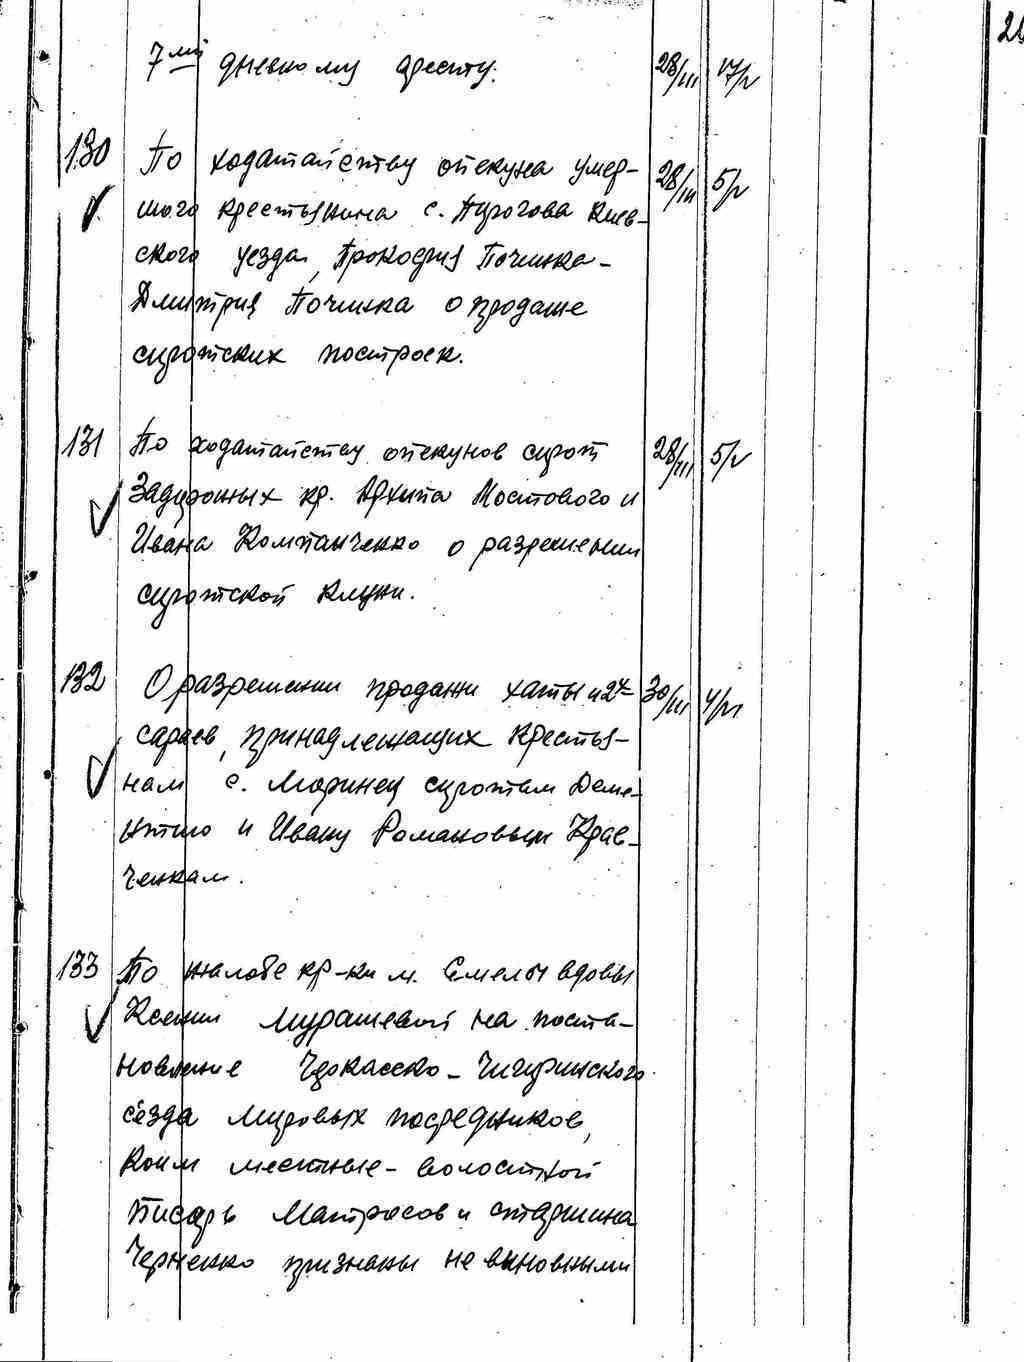 7ми дневному аресту. 28/III 17/V
130 По ходатайству опекуна умер- 28/III 5/V
шого крестьянина с. Пирогова Киев-
ского уезда, Прокофия Починка-
Дмитрия Починка о продаже
сиротских построек.
131 По ходатайству опекунов сирот 28/III 5/V
кр. Архипа Мостового и
Ивана Компанченко о разрешении
сиротской клуни.
132 О разрешении продажи хаты и 2х 30/III 4/VI
сараев, принадлежащих крестья-
нам с. Моринец сиротам Деме-
нтию и Ивану Романовым Крав-
ченкам.
133 По жалобе кр-ки м. Смелы вдовы
Ксении Мурашевой на поста-
новление Черкасско-Чигиринского
сезда мировых посредников,
коим местные - волостной
писарь Матросов и старшина
Черненко признаны не виновными